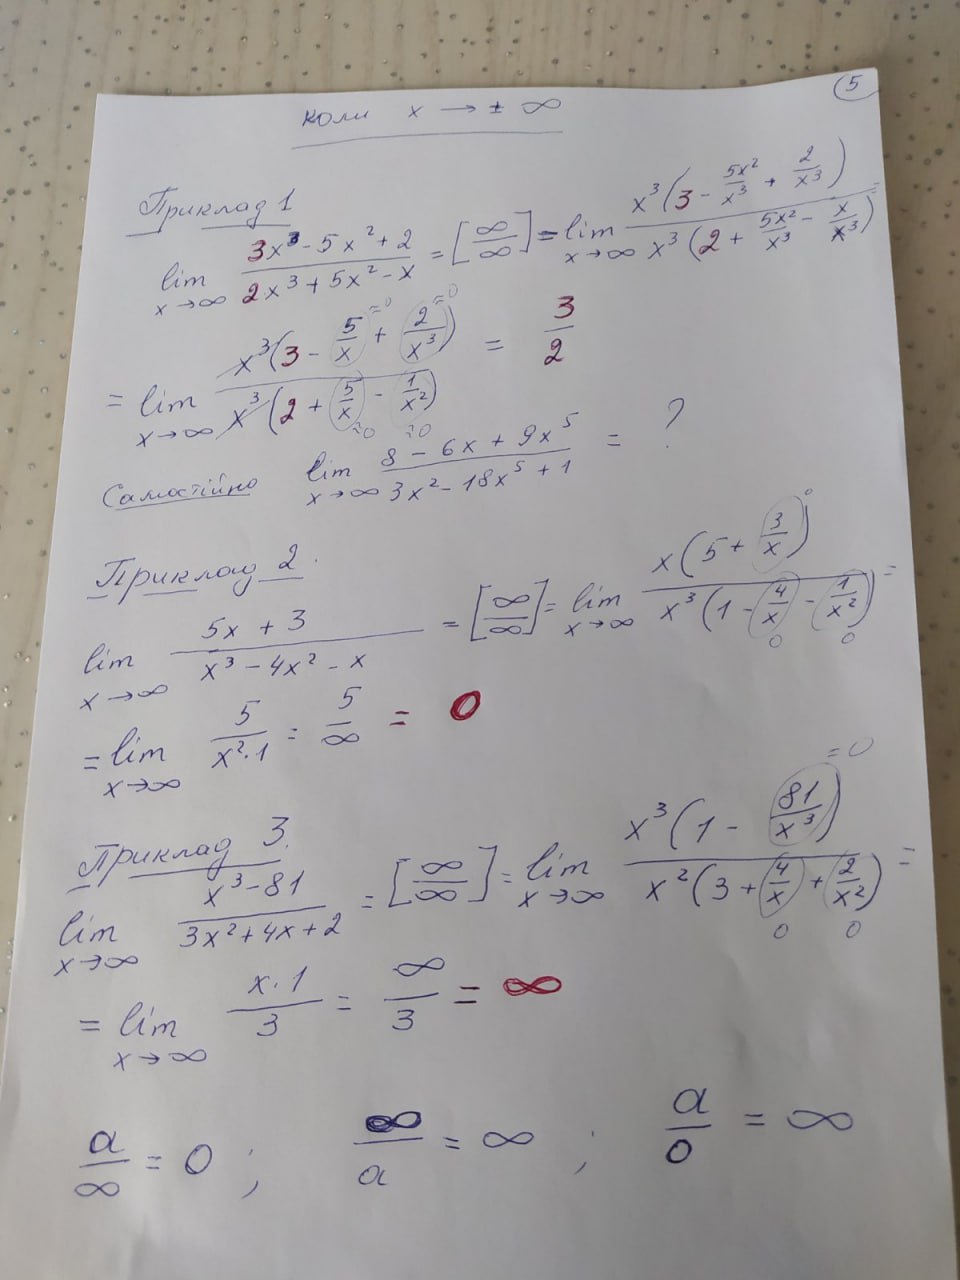 5
коли x → ± ∞
Приклад 1
lim x→∞ (3x³ - 5x² + 2)/(2x³ + 5x² - x) = [∞/∞] = lim x→∞ x³(3 - 5x²/x³ + 2/x³)/x³(2 + 5x²/x³ - x/x³) =
= lim x→∞ x³(3 - 5/x + 2/x³)/x³(2 + 5/x - 1/x²) = 3/2
≈0 ≈0 ≈0 ≈0
Самостійно lim x→∞ (8 - 6x + 9x⁵)/(3x² - 18x⁵ + 1) = ?
Приклад 2.
lim x→∞ (5x + 3)/(x³ - 4x² - x) = [∞/∞] = lim x→∞ x(5 + 3/x)/x³(1 - 4/x - 1/x²) =
0 0 0
= lim x→∞ 5/(x²·1) = 5/∞ = 0
Приклад 3.
lim x→∞ (x³ - 81)/(3x² + 4x + 2) = [∞/∞] = lim x→∞ x³(1 - 81/x³)/x²(3 + 4/x + 2/x²) =
=0 0 0
= lim x→∞ (x·1)/3 = ∞/3 = ∞
a/∞ = 0 ; ∞/a = ∞ ; a/0 = ∞